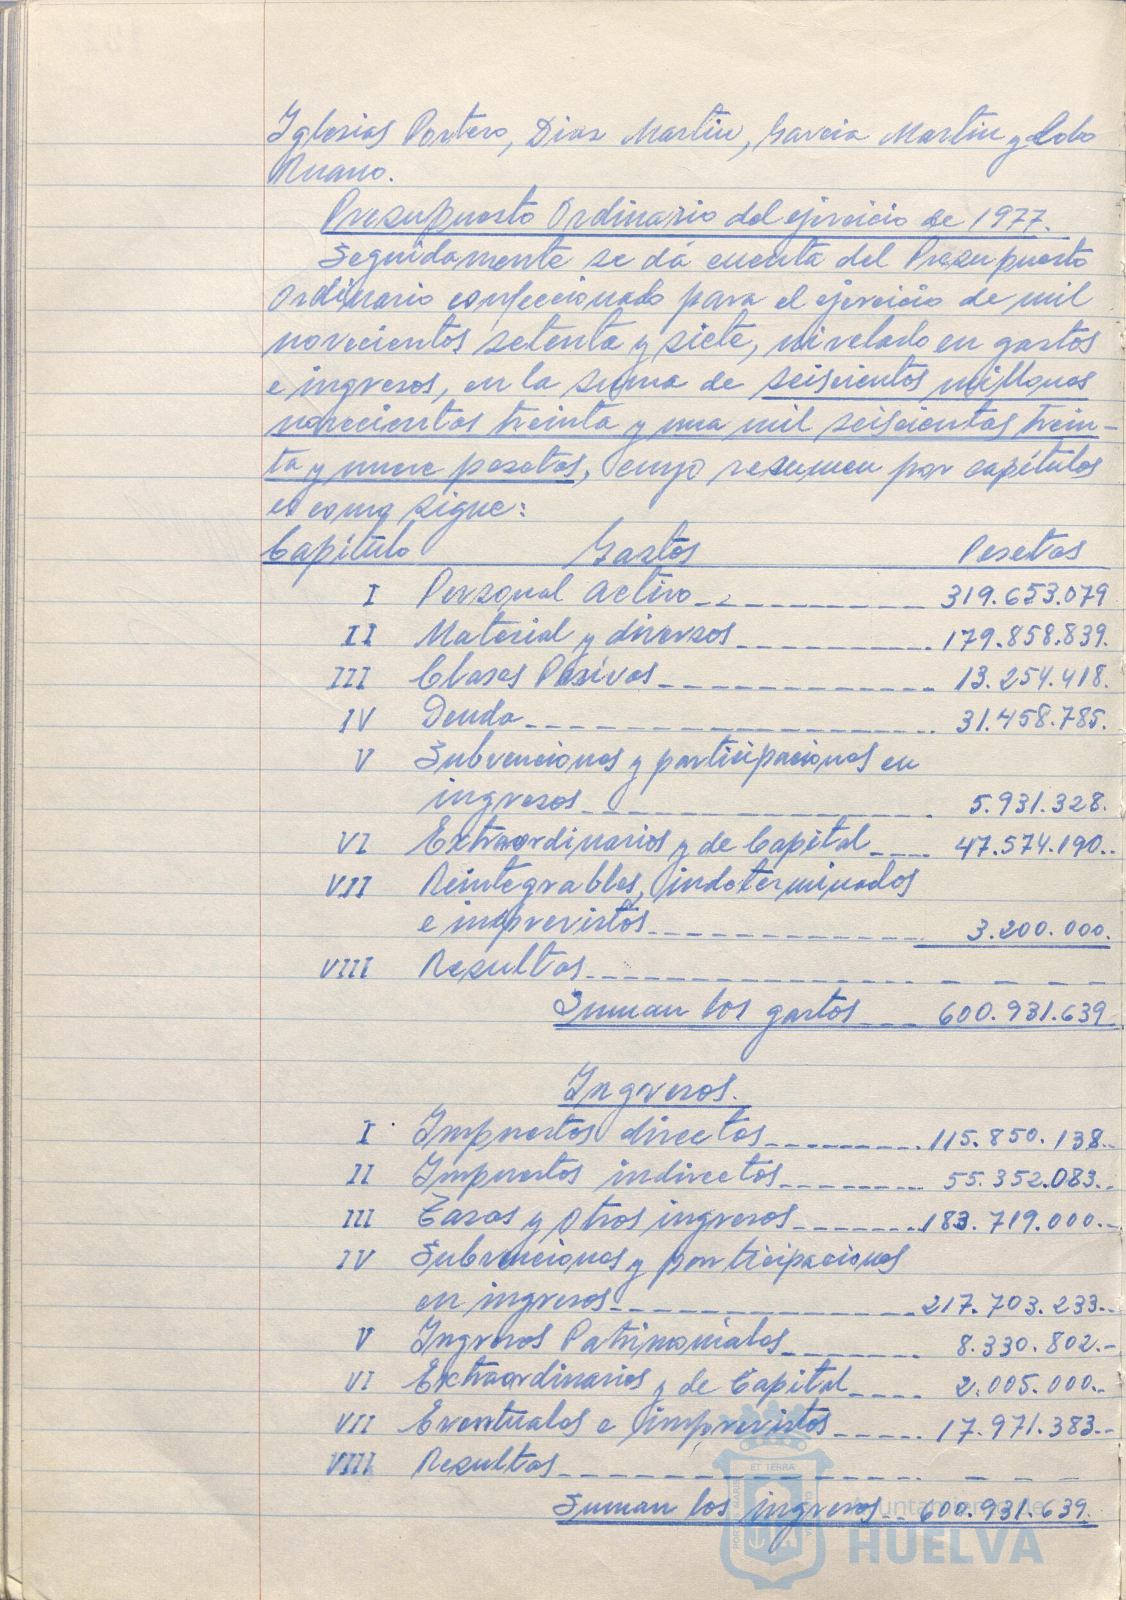 Iglesias Portero, Diaz Martin, Garcia Martin y Lobo
Ruano.
Presupuesto Ordinario del ejercicio de 1977.
Seguidamente se dá cuenta del Presupuesto
Ordinario confeccionado para el ejercicio de mil
novecientos setenta y siete, nivelado en gastos
e ingresos, en la suma de seiscientos millones
novecientas treinta y una mil seiscientas trein-
ta y nueve pesetas, cuyo resumen por capítulos
es como sigue:
Capítulo Gastos Pesetas
I Personal Activo 319.653.079
II Material y diversos 179.858.839.
III Clases Pasivas 13.254.418.
IV Deuda 31.458.785.
V Subvenciones y participaciones en
ingresos 5.931.328.
VI Extraordinarios y de Capital 47.574.190.
VII Reintegrables, indeterminados
e imprevistos 3.200.000.
VIII Resultas - - - -
Suman los gastos 600.931.639
Ingresos.
I Impuestos directos 115.850.138.-
II Impuestos indirectos 55.352.083.-
III Tasas y otros ingresos 183.719.000.-
IV Subvenciones y participaciones
en ingresos 217.703.233.-
V Ingresos Patrimoniales 8.330.802.-
VI Extraordinarios y de Capital 2.005.000.-
VII Eventuales e imprevistos 17.971.383.-
VIII Resultas - - - -
Suman los ingresos 600.931.639.
ET TERRA
Ayuntamiento de
HUELVA